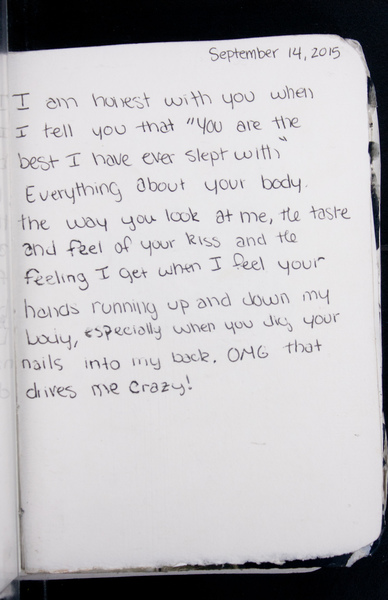 September 14, 2015
I am honest with you when
I tell you that "You are the
best I have ever slept with"
Everything about your body.
the way you look at me, the taste
and feel of your kiss and the
feeling I get when I feel your
hands running up and down my
body, especially when you dig your
nails into my back. OMG that
drives me crazy!